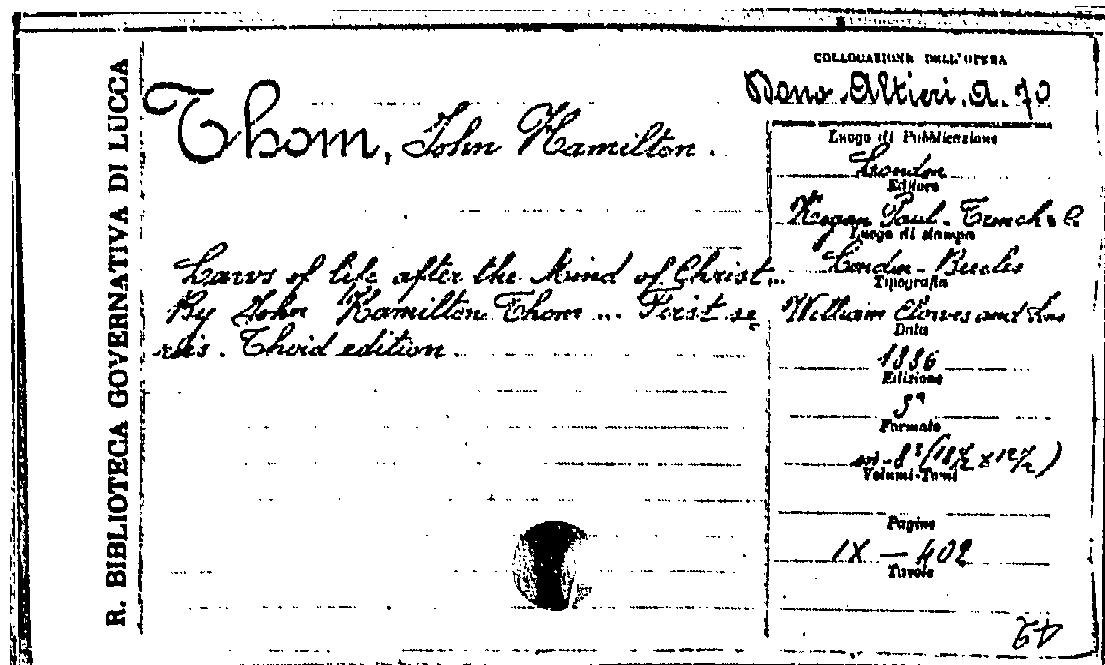 R. BIBLIOTECA GOVERNATIVA DI LUCCA
Thom, John Hamilton.
Laws of life after the Mind of Christ...
By John Hamilton Thom ... First se
ries. Third edition.
COLLOCAZIONE DELL'OPERA
Dono Altieri. A. 70
Luogo di Pubblicazione
London
Editore
Kegan Paul. Trench & C.
Luogo di stampa
London - Beccles
Tipografia
William Clowes and Sons
Data
1886
Edizione
3ª
Formato
in-8° (18½ x 12½)
Volumi-Tomi
Pagine
IX — 402
Tavole